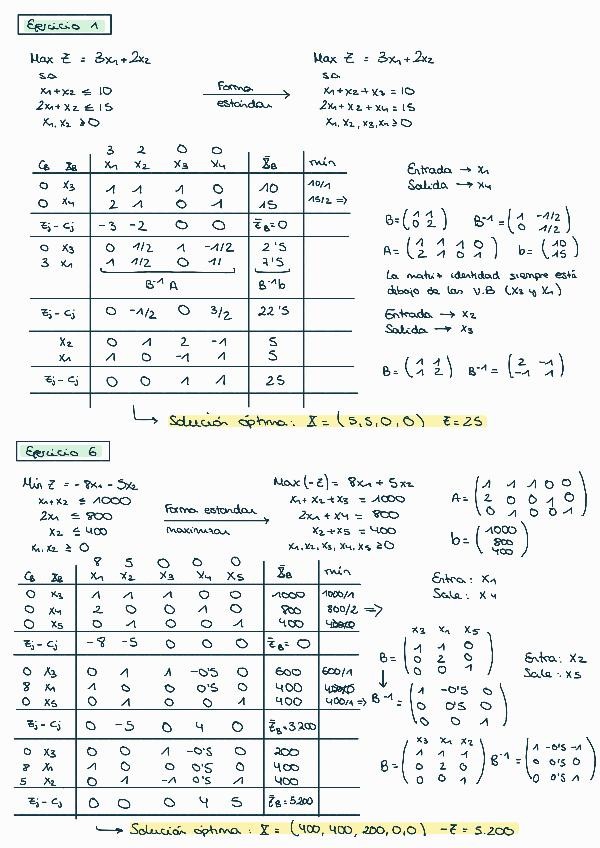 Ejercicio 1
Max Z = 3x1 + 2x2
s.a
x1 + x2 ≤ 10
2x1 + x2 ≤ 15
x1, x2 ≥ 0
Forma
estándar
Max Z = 3x1 + 2x2
s.a
x1 + x2 + x3 = 10
2x1 + x2 + x4 = 15
x1, x2, x3, x4 ≥ 0
3 2 0 0
CB XB x1 x2 x3 x4 X̄B min
0 x3 1 1 1 0 10 10/1
0 x4 2 1 0 1 15 15/2 =>
Zj - Cj -3 -2 0 0 Z̄B = 0
0 x3 0 1/2 1 -1/2 2'5
3 x1 1 1/2 0 1/ 7'5
B-1 A B-1b
Zj - Cj 0 -1/2 0 3/2 22'5
x2 0 1 2 -1 5
x1 1 0 -1 1 5
Zj - Cj 0 0 1 1 25
Entrada → x1
Salida → x4
B = (1 1 / 0 2) B-1 = (1 -1/2 / 0 1/2)
A = (1 1 1 0 / 2 1 0 1) b = (10 / 15)
La matriz identidad siempre está
debajo de las V.B (x3 y x1)
Entrada → x2
Salida → x3
B = (1 1 / 1 2) B-1 = (2 -1 / -1 1)
Solución óptima: X̄ = (5, 5, 0, 0) Z = 25
Ejercicio 6
Min Z = -8x1 - 5x2
x1 + x2 ≤ 1000
2x1 ≤ 800
x2 ≤ 400
x1, x2 ≥ 0
Forma estándar
maximizar
Max (-Z) = 8x1 + 5x2
x1 + x2 + x3 = 1000
2x1 + x4 = 800
x2 + x5 = 400
x1, x2, x3, x4, x5 ≥ 0
A = (1 1 1 0 0 / 2 0 0 1 0 / 0 1 0 0 1)
b = (1000 / 800 / 400)
8 5 0 0 0
CB XB x1 x2 x3 x4 x5 X̄B min
0 x3 1 1 1 0 0 1000 1000/1
0 x4 2 0 0 1 0 800 800/2 =>
0 x5 0 1 0 0 1 400
Zj - Cj -8 -5 0 0 0 Z̄B = 0
0 x3 0 1 1 -0'5 0 600 600/1
8 x1 1 0 0 0'5 0 400
0 x5 0 1 0 0 1 400 400/1 =>
Zj - Cj 0 -5 0 4 0 Z̄B = 3.200
0 x3 0 0 1 -0'5 0 200
8 x1 1 0 0 0'5 0 400
5 x2 0 1 -1 0'5 1 400
Zj - Cj 0 0 0 4 5 Z̄B = 5.200
Entra: x1
Sale: x4
x3 x1 x5
B = (1 1 0 / 0 2 0 / 0 0 1)
Entra: x2
Sale: x5
B-1 = (1 -0'5 0 / 0 0'5 0 / 0 0 1)
x3 x1 x2
B = (1 1 1 / 0 2 0 / 0 0 1) B-1 = (1 -0'5 -1 / 0 0'5 0 / 0 0'5 1)
Solución óptima: X̄ = (400, 400, 200, 0, 0) -Z = 5.200